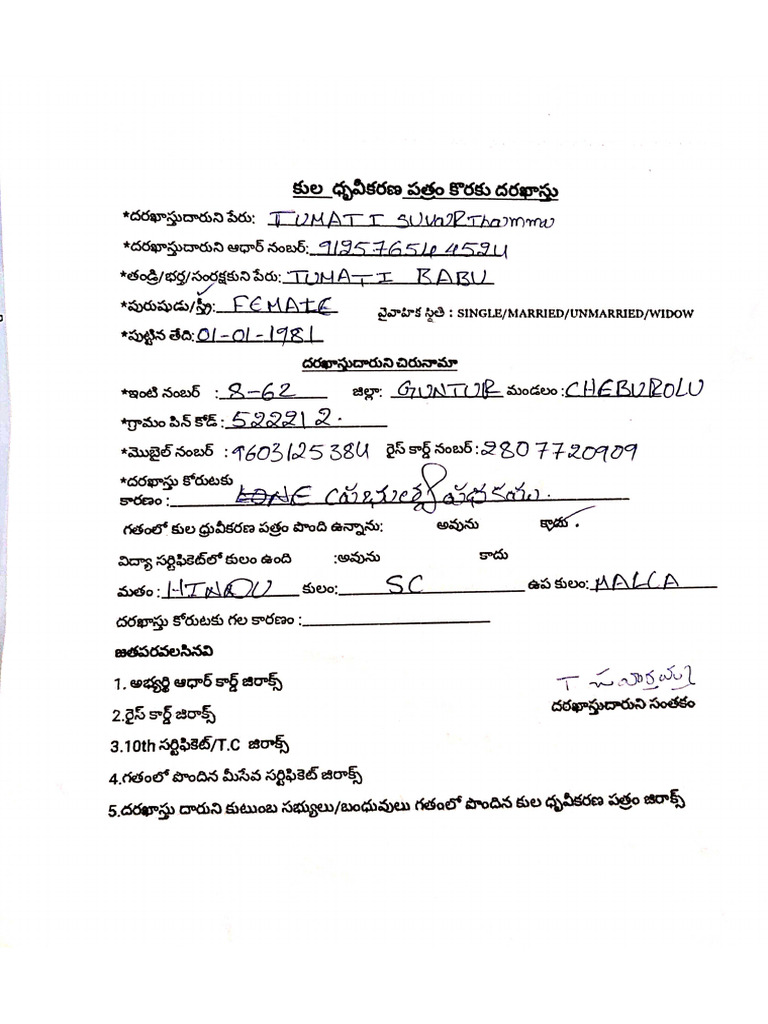 కుల ధృవీకరణ పత్రం కొరకు దరఖాస్తు
*దరఖాస్తుదారుని పేరు: TUMATI SUVARThamma
*దరఖాస్తుదారుని ఆధార్ నంబర్: 912576544524
*తండ్రి/భర్త/సంరక్షకుని పేరు: TUMATI BABU
*పురుషుడు/స్త్రీ: FEMALE వైవాహిక స్థితి : SINGLE/MARRIED/UNMARRIED/WIDOW
*పుట్టిన తేది: 01-01-1981
దరఖాస్తుదారుని చిరునామా
*ఇంటి నంబర్ : 8-62 జిల్లా: GUNTUR మండలం : CHEBUROLU
*గ్రామం పిన్ కోడ్ : 522212.
*మొబైల్ నంబర్ : 9603125384 రైస్ కార్డ్ నంబర్ : 2807720909
*దరఖాస్తు కోరుటకు
కారణం :
గతంలో కుల ధ్రువీకరణ పత్రం పొంది ఉన్నాను: అవును కాదు
విద్యా సర్టిఫికెట్‌లో కులం ఉంది :అవును కాదు
మతం : HINDU కులం: SC ఉప కులం: MALLA
దరఖాస్తు కోరుటకు గల కారణం :
జతపరవలసినవి
1. అభ్యర్థి ఆధార్ కార్డ్ జిరాక్స్
T సువార్తమ్మ
దరఖాస్తుదారుని సంతకం
2.రైస్ కార్డ్ జిరాక్స్
3.10th సర్టిఫికెట్/T.C జిరాక్స్
4.గతంలో పొందిన మీసేవ సర్టిఫికెట్ జిరాక్స్
5.దరఖాస్తు దారుని కుటుంబ సభ్యులు/బంధువులు గతంలో పొందిన కుల ధృవీకరణ పత్రం జిరాక్స్